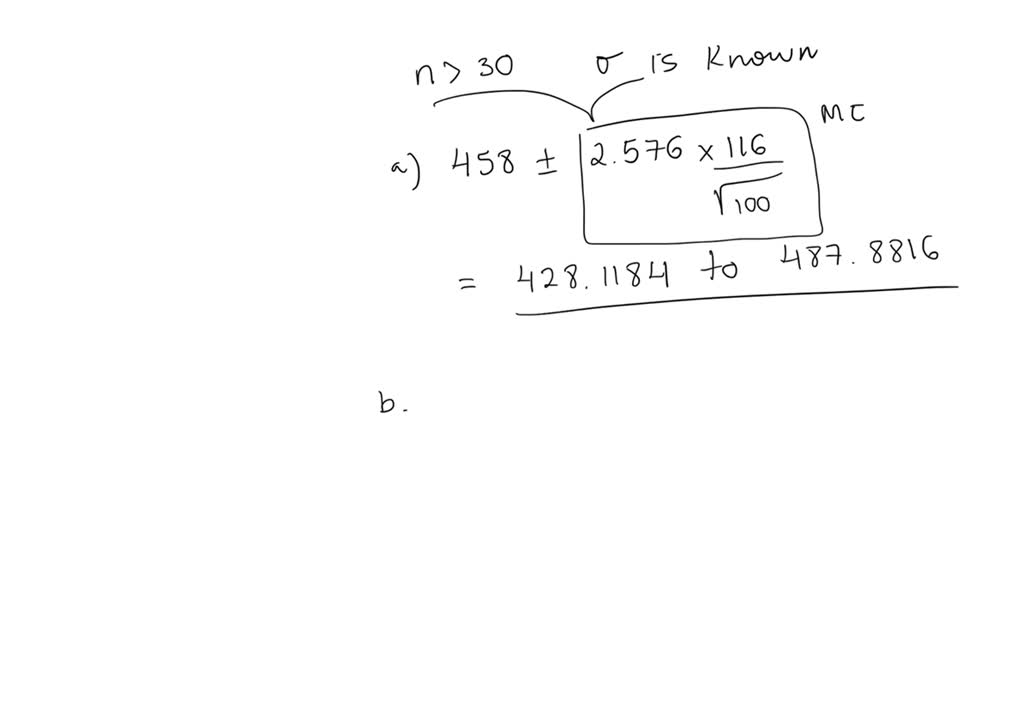 n > 30 σ is known
ME
a) 458 ± 2.576 × 116 / √100
= 428.1184 to 487.8816
b.